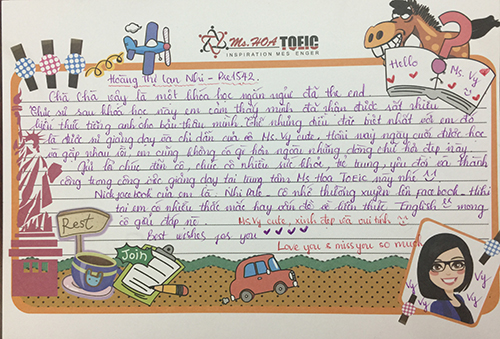 Ms. HOA TOEIC
INSPIRATION MES ENGER
Hello
Ms. Vy
Hoàng Thị Lan Nhi - Pre 1542.
Chà Chà vậy là một khóa học ngắn ngủi đã the end.
Thức sự sau khóa học này em cảm thấy mình đã nhận được rất nhiều
kiến thức từng anh cho bản thân mình. Thế nhưng điều đặc biệt nhất với em đó
là được sự giảng dạy và chỉ dẫn của cô Ms. Vy cute. Hôm nay ngày cuối được học
và gặp nhau rồi, em cũng không có gì hơn ngoài những dòng chữ thật đẹp này
Gửi lời chúc đến cô, chúc cô nhiều sức khỏe, trẻ trung, yêu đời và thành
công trong công việc giảng dạy tại trung tâm Ms Hoa Toeic này nhé
Nick facebook của em là: Nhi Pale. Cô nhớ thường xuyên lên facebook. Hihi
tại em có nhiều thắc mắc hay vấn đề về kiến thức English mong
cô giải đáp nè.
Ms Vy cute, xinh đẹp và vui tính
Best wishes for you
Love you & miss you so much
Rest
Join
Vy
Vy
Vy
Vy